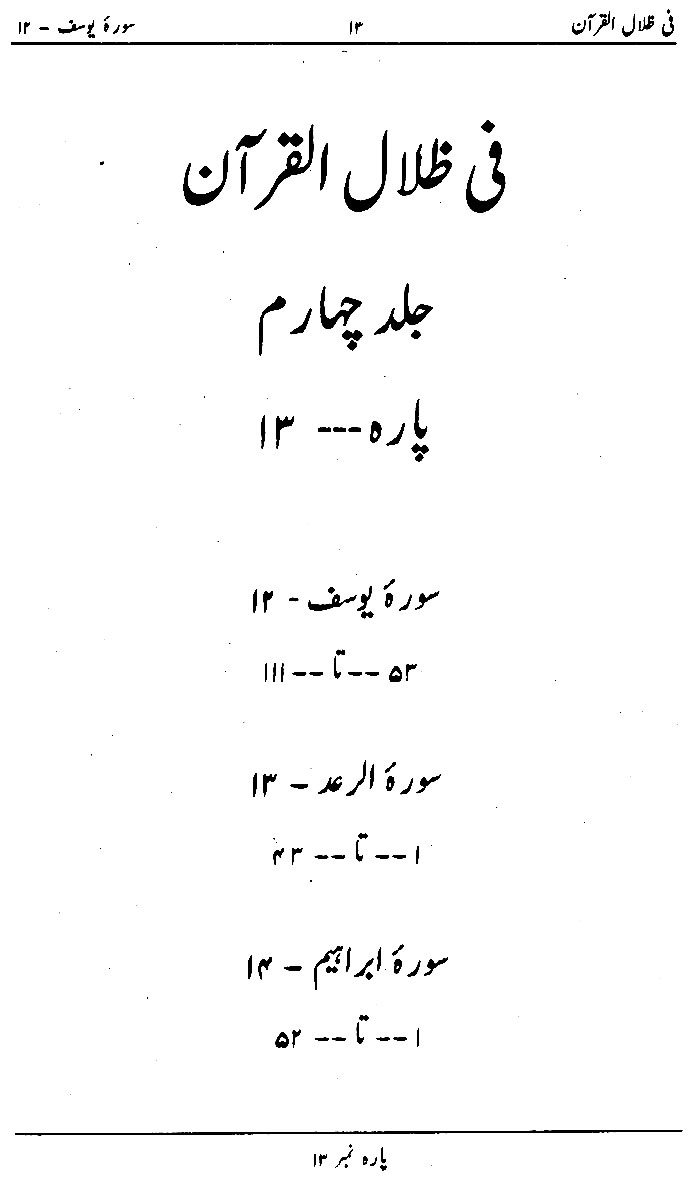 فی ظلال القرآن ۱۳ سورۂ یوسف – ۱۲
فی ظلال القرآن
جلد چہارم
پارہ --- ۱۳
سورۂ یوسف - ۱۲
۵۳ -- تا -- ۱۱۱
سورۂ الرعد – ۱۳
۱ -- تا -- ۴۳
سورۂ ابراہیم – ۱۴
۱ -- تا -- ۵۲
پارہ نمبر ۱۳